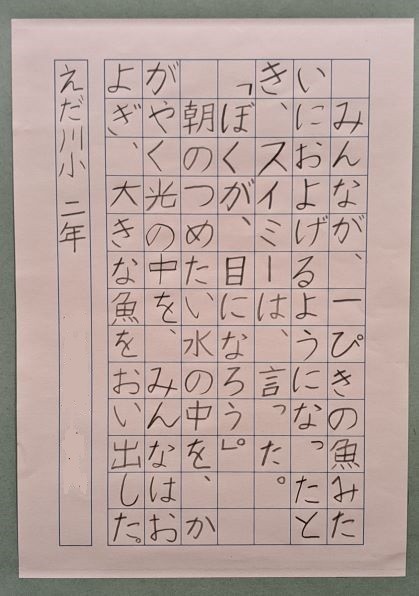 みんなが、一ぴきの魚みた
いにおよげるようになったと
き、スイミーは、言った。
「ぼくが、目になろう。」
朝のつめたい水の中を、か
がやく光の中を、みんなはお
よぎ、大きな魚をおい出した。
えだ川小 二年